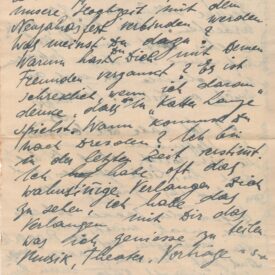 unsere Hochzeit mit dem
Neujahrsfest verbinden werden
Was meinst Du dazu?
Warum hast Dich mit Deinen
Freunden verzannt? Es ist
schrecklich wenn ich daran
denke, dass Du "Kattn
spielst. Wann kommst Du
nach Dresden? Ich bin
in der letzten Zeit verstimt.
Ich habe oft das
wahnsinige Verlangen Dich
zu sehen, ich habe das
Verlangen mit Dir das
was ich geniesse zu teilen
Musik, Theater, Vorträge